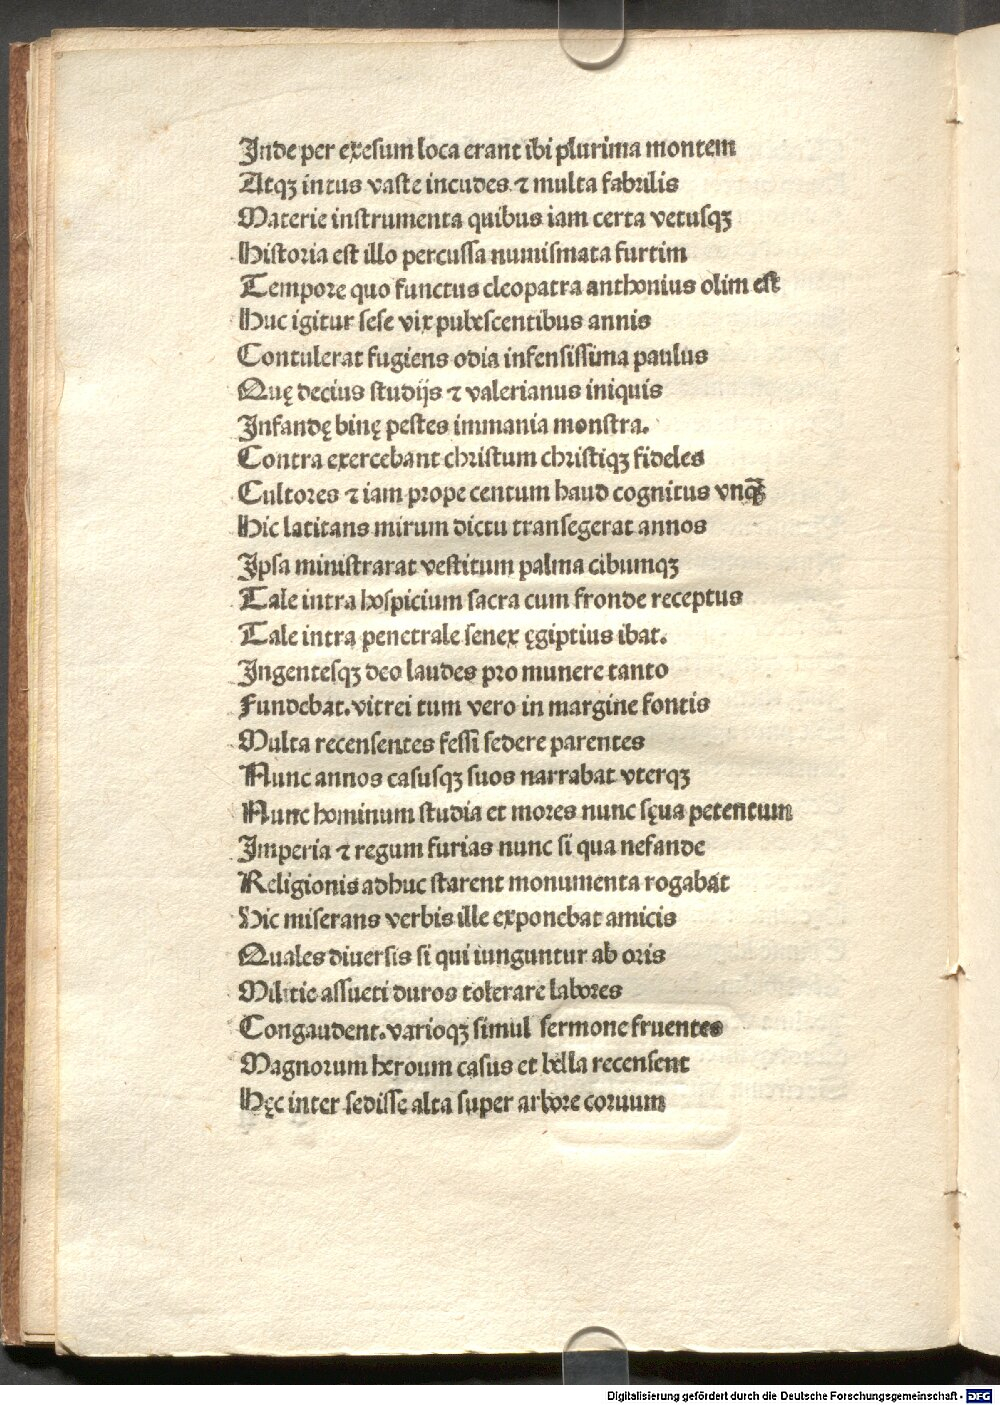 Inde per exesum loca erant ibi plurima montem
Atqꝫ intus vaste incudes ⁊ multa fabrilis
Materie instrumenta quibus iam certa vetusqꝫ
Historia est illo percussa numismata furtim
Tempore quo functus cleopatra anthonius olim est
Huc igitur sese vix pubescentibus annis
Contulerat fugiens odia infensissima paulus
Quę decius studijs ⁊ valerianus iniquis
Infandę binę pestes immania monstra.
Contra exercebant christum christiqꝫ fideles
Cultores ⁊ iam prope centum haud cognitus vnq̃ꝫ
Hic latitans mirum dictu transegerat annos
Ipsa ministrarat vestitum palma cibumqꝫ
Tale intra hospicium sacra cum fronde receptus
Tale intra penetrale senex ęgiptius ibat.
Ingentesqꝫ deo laudes pro munere tanto
Fundebat. vitrei tum vero in margine fontis
Multa recensentes fessi sedere parentes
Nunc annos casusqꝫ suos narrabat vterqꝫ
Nunc hominum studia et mores nunc sęua petentum
Imperia ⁊ regum furias nunc si qua nefande
Religionis adhuc starent monumenta rogabat
Hic miserans verbis ille exponebat amicis
Quales diuersis si qui iunguntur ab oris
Militie assueti duros tolerare labores
Congaudent. varioqꝫ simul sermone fruentes
Magnorum heroum casus et bella recensent
Hęc inter sedisse alta super arbore coruum
Digitalisierung gefördert durch die Deutsche Forschungsgemeinschaft - DFG